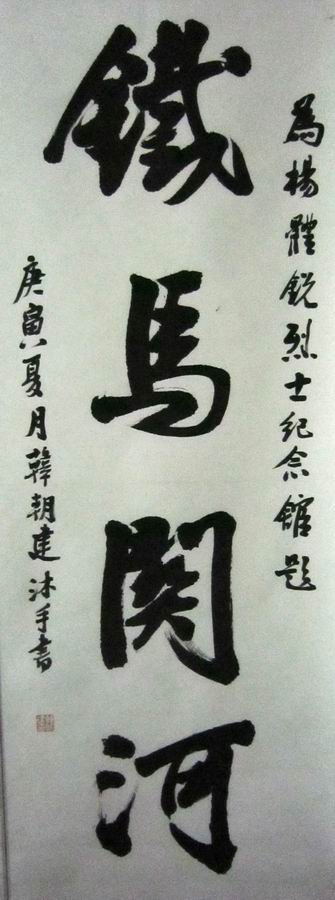 為楊體銳烈士纪念館題
鐵馬関河
庚寅夏月韓朝建沐手書